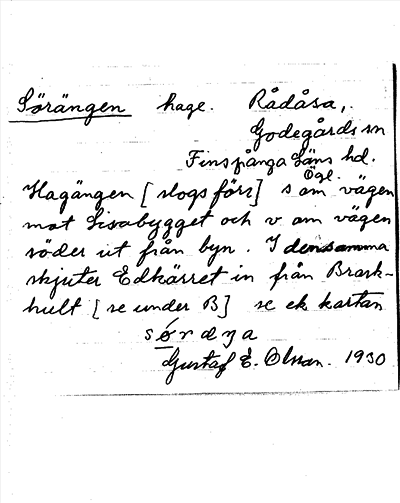 Sörängen hage. Rådåsa,.
Godegårds sn
Finspånga läns hd.
Ögl.
Hagängen [slogs förr] s om vägen
mot Lisabygget och v om vägen
söder ut från byn. I densamma
skjuter Edkärret in från Brank-
hult [se under B] se ek kartan
Gustaf E. Olsson. 1930